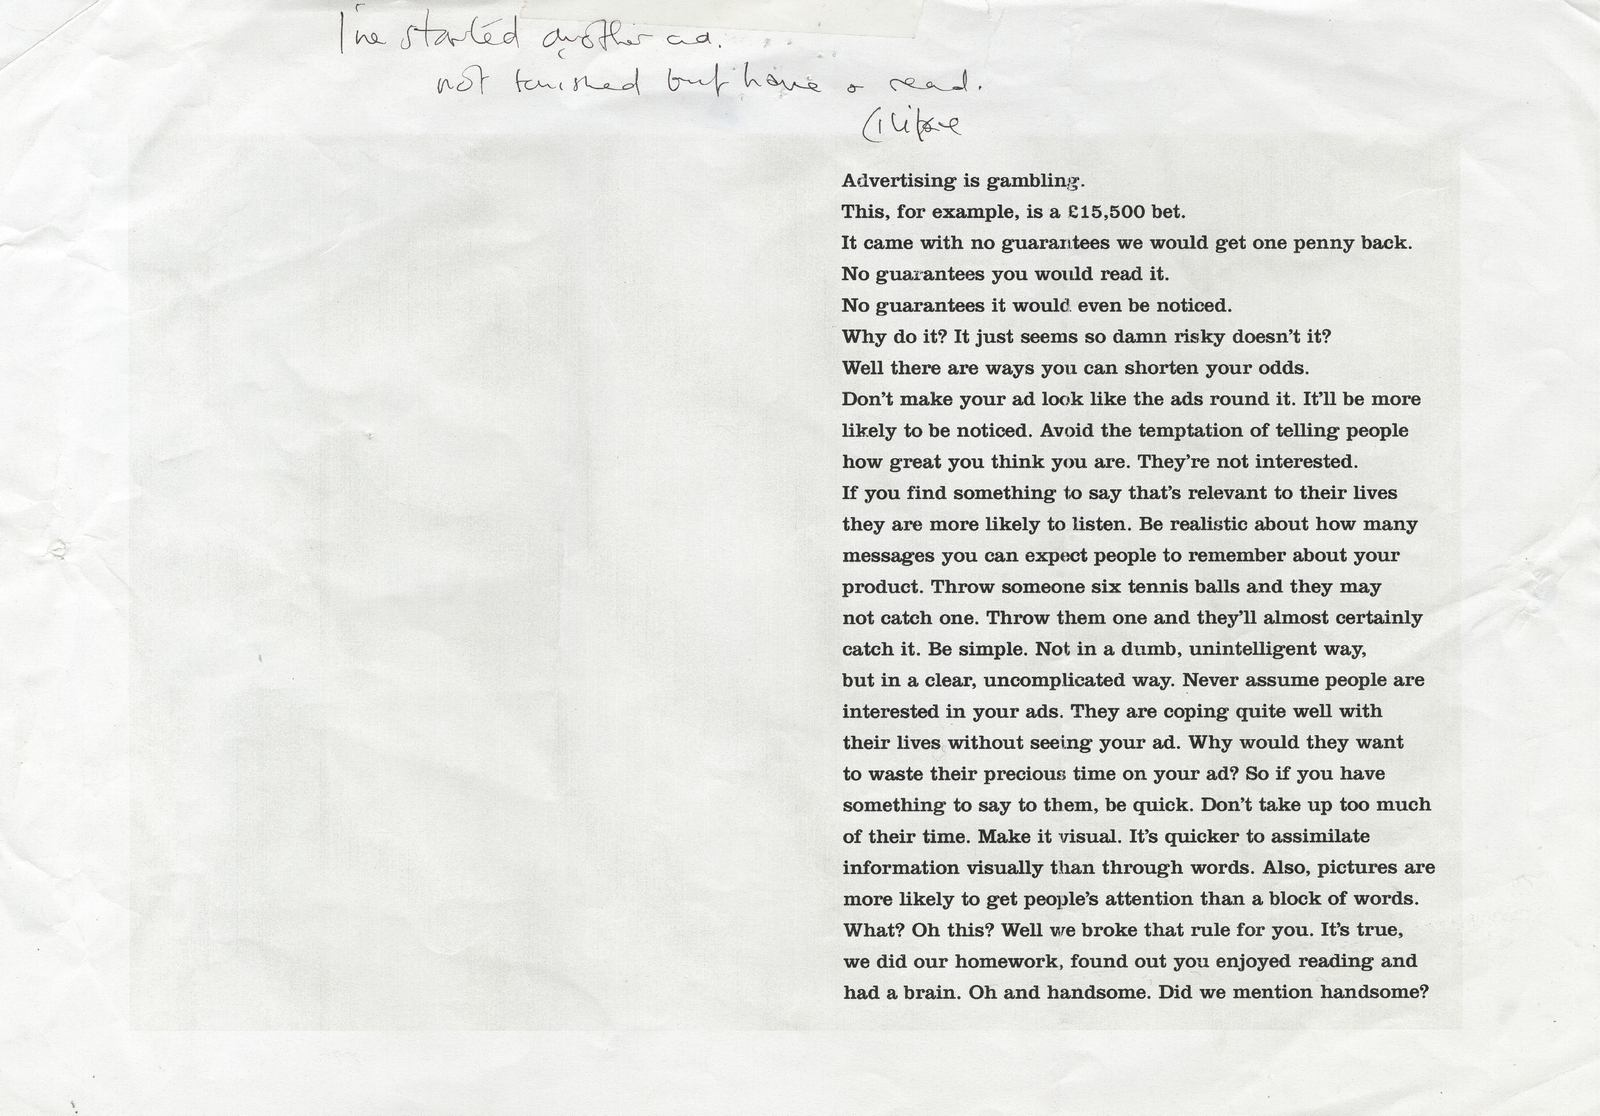 I've started another ad.
not finished but have a read.
Advertising is gambling.
This, for example, is a £15,500 bet.
It came with no guarantees we would get one penny back.
No guarantees you would read it.
No guarantees it would even be noticed.
Why do it? It just seems so damn risky doesn't it?
Well there are ways you can shorten your odds.
Don't make your ad look like the ads round it. It'll be more
likely to be noticed. Avoid the temptation of telling people
how great you think you are. They're not interested.
If you find something to say that's relevant to their lives
they are more likely to listen. Be realistic about how many
messages you can expect people to remember about your
product. Throw someone six tennis balls and they may
not catch one. Throw them one and they'll almost certainly
catch it. Be simple. Not in a dumb, unintelligent way,
but in a clear, uncomplicated way. Never assume people are
interested in your ads. They are coping quite well with
their lives without seeing your ad. Why would they want
to waste their precious time on your ad? So if you have
something to say to them, be quick. Don't take up too much
of their time. Make it visual. It's quicker to assimilate
information visually than through words. Also, pictures are
more likely to get people's attention than a block of words.
What? Oh this? Well we broke that rule for you. It's true,
we did our homework, found out you enjoyed reading and
had a brain. Oh and handsome. Did we mention handsome?